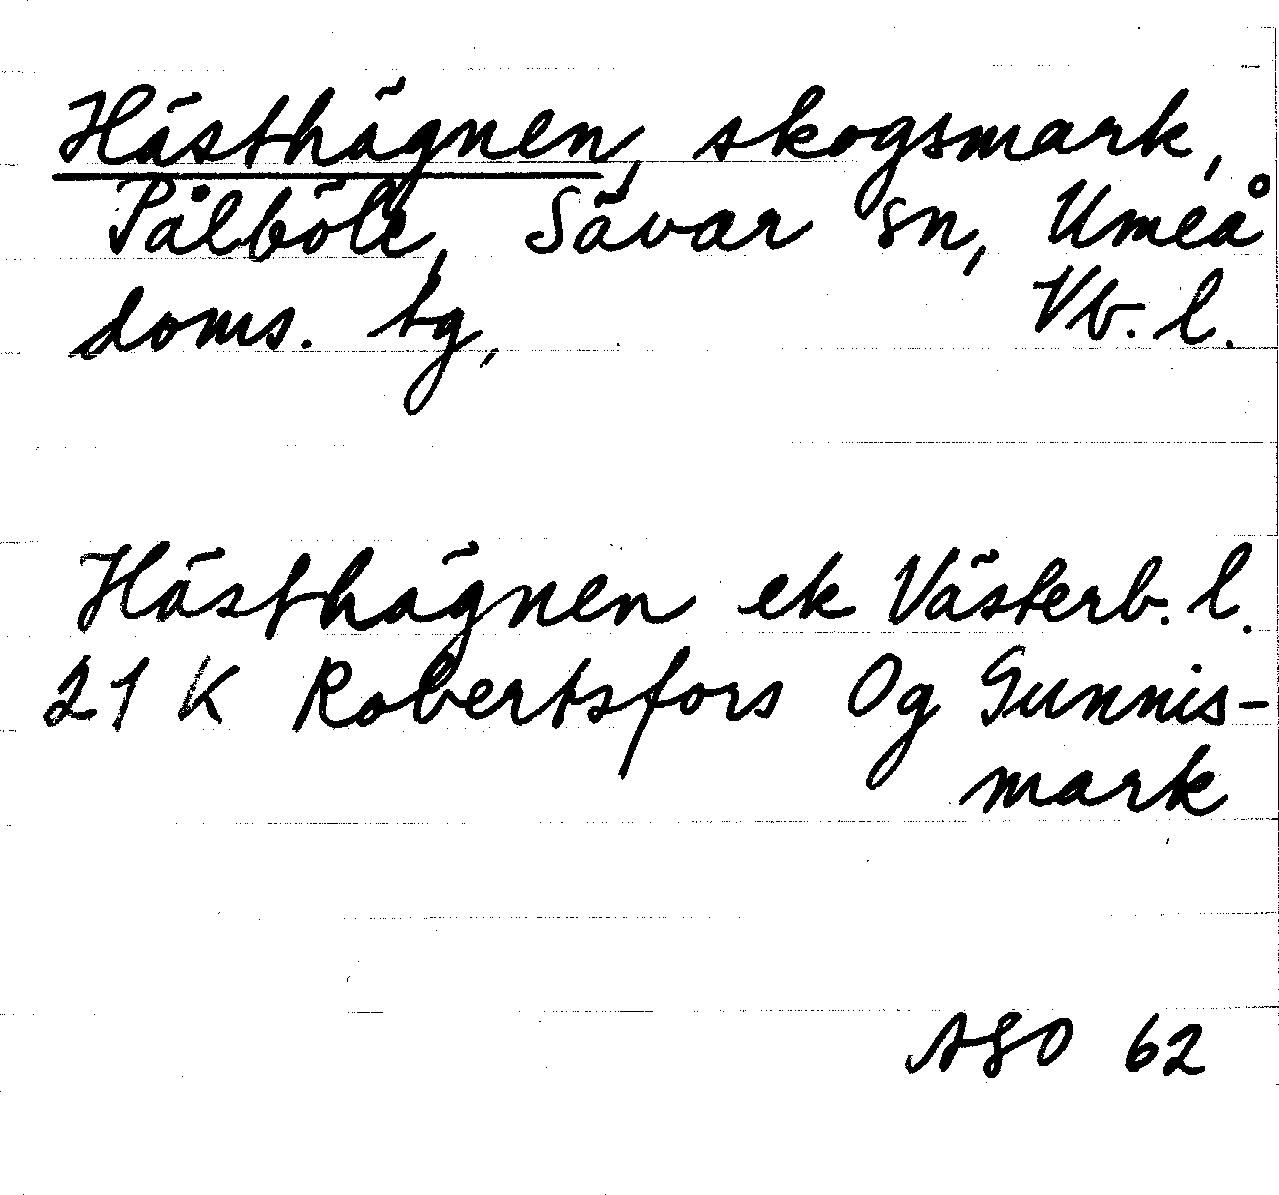 Hästhägnen, skogsmark,
Pålböle, Sävar sn, Umeå
doms. tg, Vb. l.
Hästhägnen ek Västerb. l.
21 K Robertsfors Og Gunnis-
mark
ASO 62